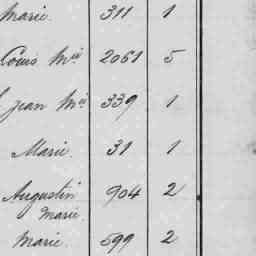 Marie. 311 1
Louis Mie 2061 5
Jean Mie 339 1
Marie. 31 1
Augustin 904 2
Marie.
Marie. 599 2